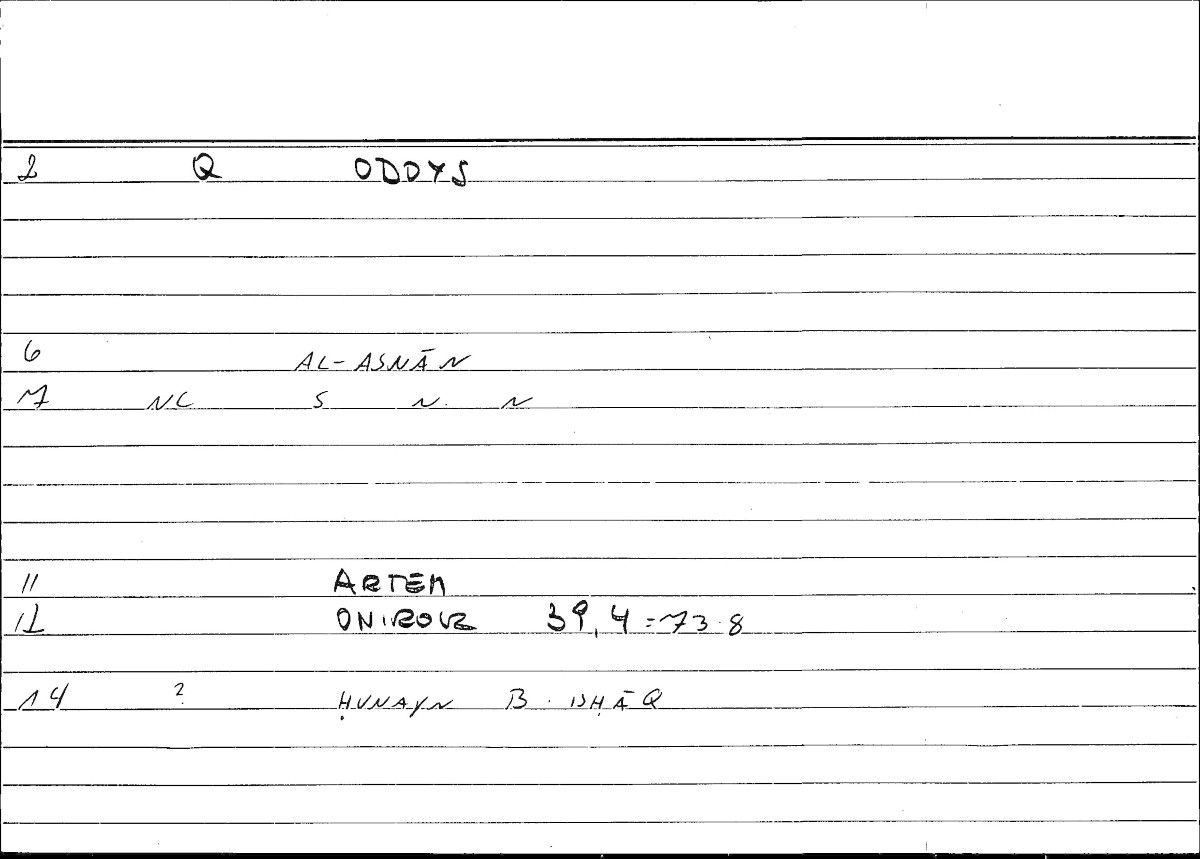 2 Q ODOYS
6 AL-ASNĀN
7 NC S N. N
11 ARTEM
12 ONIROCR 39,4 = 73.8
14 ? ḤUNAYN B. ISḤĀQ